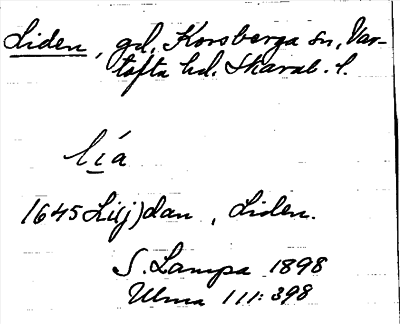 Liden, gd, Korsberga sn, Var-
tofta hd. Skarab. l.
lía
1645 Li(j)dan, Liden.
S. Lampa 1898
Ulma 111:398